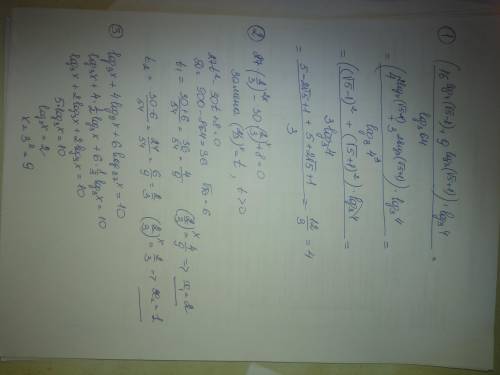 ① (16^{log_4(√5-1)} + 9^{log_3(√5+1)}) · log_3 4 / log_3 64 =
= (4^{2log_4(√5-1)} + 3^{2log_3(√5+1)}) · log_3 4 / log_3 4^3 =
= ((√5-1)^2 + (√5+1)^2) · log_3 4 / 3log_3 4 =
= 5-2√5+1 + 5+2√5+1 / 3 = 12/3 = 4
② 27(2/3)^{2x} - 30(2/3)^x + 8 = 0
заміна (2/3)^x = t, t>0
27t^2 - 30t + 8 = 0
D = 900 - 864 = 36 √D = 6
t_1 = 30+6/54 = 36/54 = 4/6 (2/3)^x = 4/9 => x_1 = 2
t_2 = 30-6/54 = 24/54 = 6/9 = 2/3 (2/3)^x = 2/3 => x_2 = 1
③ log_3 x + 4log_9 x + 6log_27 x = 10
log_3 x + 4·1/2 log_3 x + 6·1/3 log_3 x = 10
log_3 x + 2log_3 x + 2log_3 x = 10
5log_3 x = 10
log_3 x = 2
x = 3^2 = 9